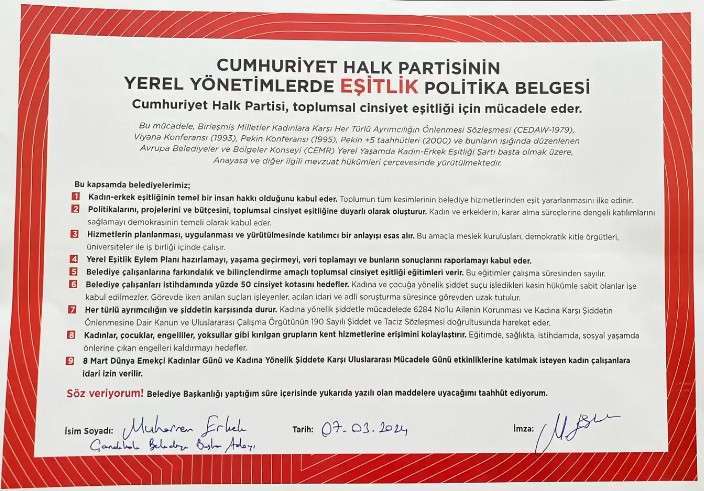 CUMHURİYET HALK PARTİSİNİN
YEREL YÖNETİMLERDE EŞİTLİK POLİTİKA BELGESİ
Cumhuriyet Halk Partisi, toplumsal cinsiyet eşitliği için mücadele eder.
Bu mücadele, Birleşmiş Milletler Kadınlara Karşı Her Türlü Ayrımcılığın Önlenmesi Sözleşmesi (CEDAW-1979),
Viyana Konferansı (1993), Pekin Konferansı (1995), Pekin +5 taahhütleri (2000) ve bunların ışığında düzenlenen
Avrupa Belediyeler ve Bölgeler Konseyi (CEMR) Yerel Yaşamda Kadın-Erkek Eşitliği Şartı başta olmak üzere,
Anayasa ve diğer ilgili mevzuat hükümleri çerçevesinde yürütülmektedir.
Bu kapsamda belediyelerimiz;
1 Kadın-erkek eşitliğinin temel bir insan hakkı olduğunu kabul eder. Toplumun tüm kesimlerinin belediye hizmetlerinden eşit yararlanmasını ilke edinir.
2 Politikalarını, projelerini ve bütçesini, toplumsal cinsiyet eşitliğine duyarlı olarak oluşturur. Kadın ve erkeklerin, karar alma süreçlerine dengeli katılımlarını
sağlamayı demokrasinin temeli olarak kabul eder.
3 Hizmetlerin planlanması, uygulanması ve yürütülmesinde katılımcı bir anlayışı esas alır. Bu amaçla meslek kuruluşları, demokratik kitle örgütleri,
üniversiteler ile iş birliği içinde çalışır.
4 Yerel Eşitlik Eylem Planı hazırlamayı, yaşama geçirmeyi, veri toplamayı ve bunların sonuçlarını raporlamayı kabul eder.
5 Belediye çalışanlarına farkındalık ve bilinçlendirme amaçlı toplumsal cinsiyet eşitliği eğitimleri verir. Bu eğitimler çalışma süresinden sayılır.
6 Belediye çalışanları istihdamında yüzde 50 cinsiyet kotasını hedefler. Kadına ve çocuğa yönelik suç işledikleri kesin hükümle sabit olanlar işe
kabul edilmezler. Görevde iken anılan suçları işleyenler, açılan idari ve adli soruşturma süresince görevden uzak tutulur.
7 Her türlü ayrımcılığın ve şiddetin karşısında durur. Kadına yönelik şiddetle mücadelede 6284 No'lu Ailenin Korunması ve Kadına Karşı Şiddetin
Önlenmesine Dair Kanun ve Uluslararası Çalışma Örgütünün 190 Sayılı Şiddet ve Taciz Sözleşmesi doğrultusunda hareket eder.
8 Kadınlar, çocuklar, engelliler, yoksullar gibi kırılgan grupların kent hizmetlerine erişimini kolaylaştırır. Eğitimde, sağlıkta, istihdamda, sosyal yaşamda
önlerine çıkan engelleri kaldırmayı hedefler.
9 8 Mart Dünya Emekçi Kadınlar Günü ve Kadına Yönelik Şiddete Karşı Uluslararası Mücadele Günü etkinliklerine katılmak isteyen kadın çalışanlara
idari izin verilir.
Söz veriyorum! Belediye Başkanlığı yaptığım süre içerisinde yukarıda yazılı olan maddelere uyacağımı taahhüt ediyorum.
İsim Soyadı: Muharrem Erkek Tarih: 07-03.2024 İmza:
Çanakkale Belediye Başkan Adayı